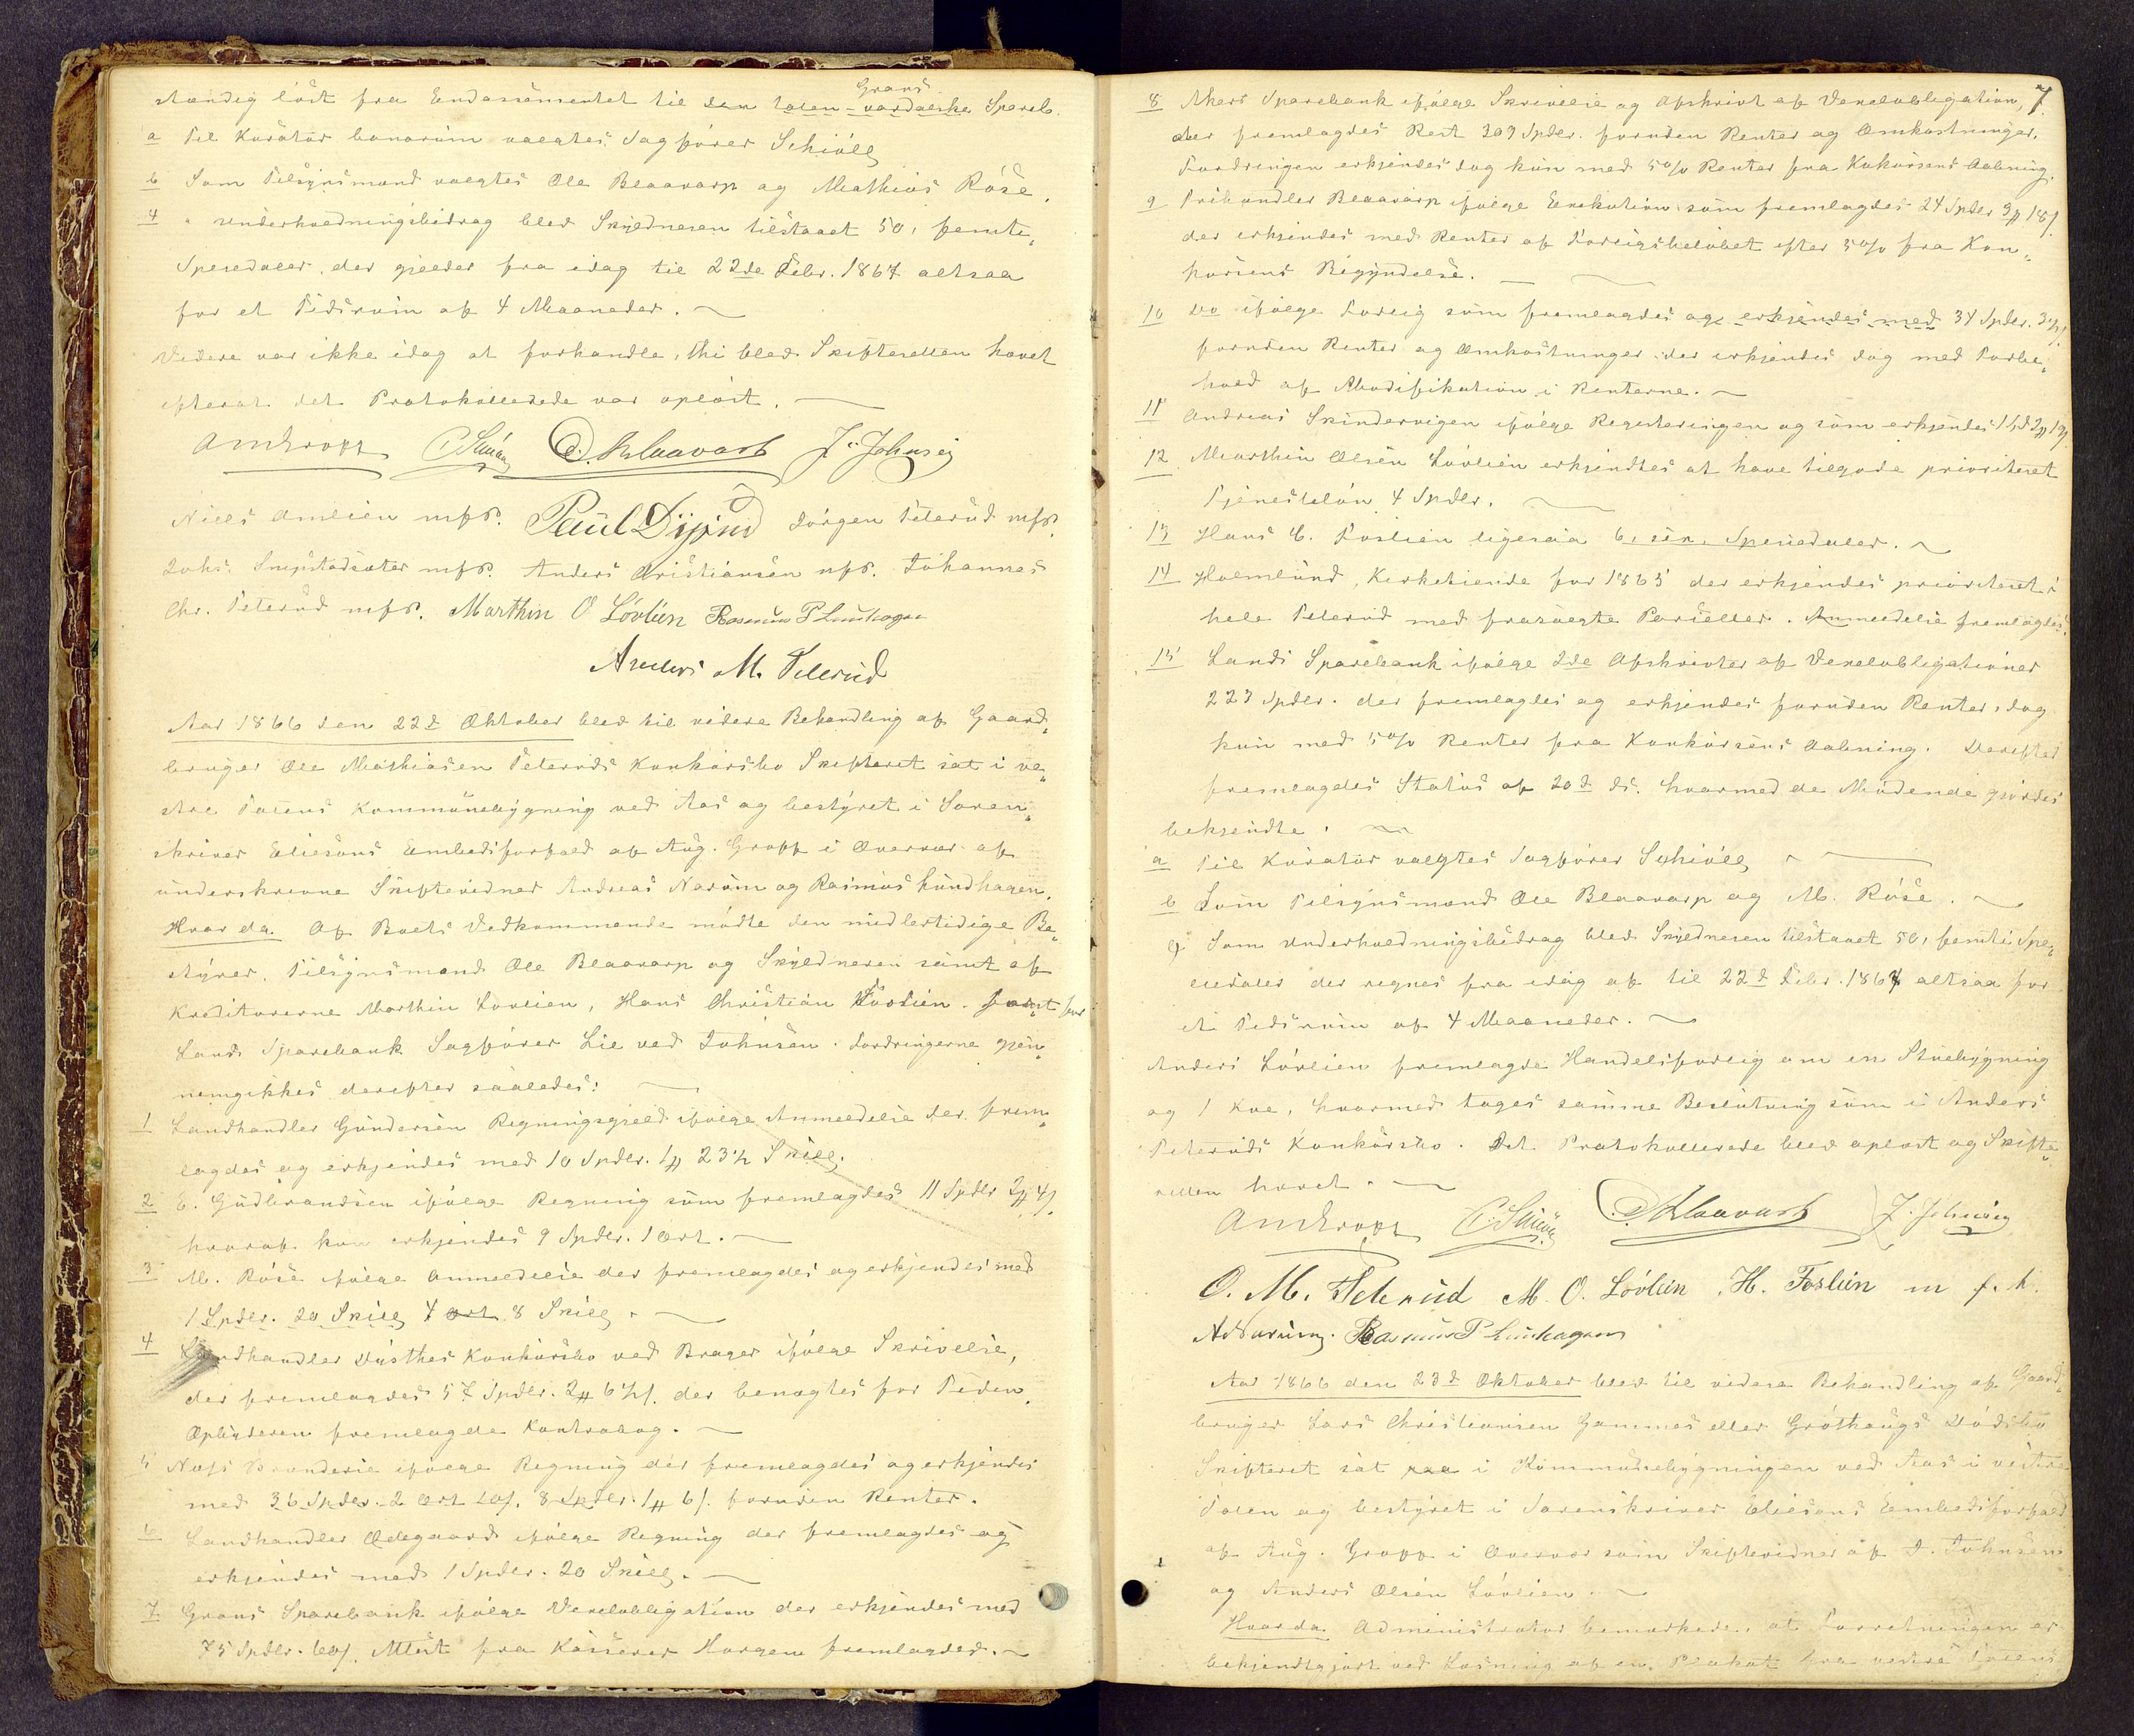 stændig løst fra Endossementet til den Toten-vardalske Spareb.
Grans
a Til Kurator bonorum valgtes Sagfører Schiöll
b Som Tilsynsmænd valgtes Ole Blaavarp og Mathias Röse.
4 " Underholdningsbidrag blev Skyldneren tilstaaet 50, femti,
Speciedaler, der gjelder fra idag til 22de Febr. 1867 altsaa
for et Tidsrum af 4 Maaneder.
Videre var ikke idag at forhandle, thi blev Skifteretten hævet
efterat det Protokollerede var oplæst.
Aug Gropp O. Blaavarp J. Johnsen
Niels Amlien mfP. Paul Dysjord Jørgen Teterud mfP.
Johs. Smestadsæter mfP. Anders Cristiansen mfP. Johannes
Chr. Teterud mfP. Marthin O Lövlien Rasmus P Lundhagen
Anders M. Teterud
Aar 1866 den 22d Oktober blev til videre Behandling af Gaard,
bruger Ole Mathiasen Teteruds Konkursbo Skifteret sat i ve,
stre Totens Kommunebygning ved Aas og bestyret i Soren,
skriver Eliesons Embedsforfald af Aug. Gropp i Overvær af
underskrevne Skiftevidner Andreas Narum og Rasmus Lundhagen.
Hvorda. Af Boets Vedkommende mødte den midlertidige Be,
styrer, Tilsynsmand Ole Blaavarp og Skyldneren samt af
Kreditorerne Marthin Lövlien, Hans Christian Foslien. samt for
Lands Sparebank Sagfører Lie ved Johnsen. Fordringerne gjen,
nemgikkes derefter saaledes:
1 Landhandler Gundersen Regningsgjeld ifølge Anmeldelse der frem,
lagdes og erkjendes med 10 Spdlr. 1# 23½ Skill.
2 E. Gudbrandsen ifølge Regning som fremlagdes 11 Spdlr 2# 4/.
hvoraf kun erkjendes 9 Spdlr. 1 Ort.
3 M. Röse ifølge Anmeldelse der fremlagdes og erkjendes med
1 Spdlr. 20 Skill 4 Ort 8 Skill.
4 Landhandler Dusthes Konkursbo ved Brager ifølge Skrivelse,
der fremlagdes 57 Spdlr. 2# 6½/. der benegtes for Tiden.
Opbyderen fremlagde Kontrabog.
5 Næss Brænderie ifølge Regning der fremlagdes og erkjendes
med 36 Spdlr. 2 Ort 20/. 8 Spdlr. 1# 6/. foruden Renter.
6 Landhandler Ødegaard ifølge Regning der fremlagdes og
erkjendes med 1 Spdlr. 20 Skill.
7 Grans Sparebank ifølge Vexelobligation der erkjendes med
75 Spdlr. 60/. Attest fra Kasserer Horgen fremlagdes.
7
8 Akers Sparebank ifølge Skrivelse og Afskrivt af Vexelobligation,
der fremlagdes Rest 309 Spdlr. foruden Renter og Omkostninger.
Fordringen erkjendes dog kun med 5% Renter fra Kokursens Aabning.
9 Prihandler Blaavarp ifølge Exekution som fremlagdes 24 Spdlr 3# 18/.
der erkjendes med Renter af Forligsbeløbet efter 5% fra Kon,
kursens Begyndelse.
10 Do ifølge Forlig som fremlagdes og erkjendes med 34 Spdlr.
foruden Renter og Omkostninger der erkjendes dog med Forbe,
hold af Modifikation i Renterne.
11 Andreas Skindervigen ifølge Registeringen og som erkjendes
12 Marthin Olsen Lövlien erkjendtes at have tilgode prioriteret
Tjenesteløn 4 Spdlr.
13 Hans C. Foslien ligesaa 6, sex, Speciedaler.
14 Holmlund, Kirketiende for 1865 der erkjendes prioriteret i
hele Teterud med frasolgte Parseller. Anmeldelse fremlagdes.
15 Lands Sparebank ifølge 2de Afskrivter af Vexelobligationer
223 Spdlr. der fremlagdes og erkjendes foruden Renter, dog
kun med 5% Renter fra Konkursens Aabning. Derefter
fremlagdes Status af 20d ds. hvormed de Mødende gjordes
bekjendte.
a Til Kurator valgtes Sagfører Schiöll
b Som Tilsynsmænd Ole Blaavarp og M. Röse.
c Som Underholdningsbidrag blev Skyldneren tilstaaet 50, femti Spe,
ciedaler der regnes fra idag af til 22d Febr. 1867 altsaa for
et Tidsrum af 4 Maaneder.
Anders Lövlien fremlagde Handelsforlig om en Stuebygning
og 1 Koe, hvormed toges samme Beslutning som i Anders
Teteruds Konkursbo. Det Protokollerede blev oplæst og Skifte,
retten hævet.
Aug Gropp O. Blaavarp J. Johnsen
O. M. Teterud M. O. Lövlien H. Foslien m f. P.
A Narum. Rasmus P Lundhagen
Aar 1866 den 23d Oktober blev til videre Behandling af Gaard,
bruger Lars Christiansen Gammes eller Gröthaugs Dödsbo
Skifteret sat paa i Kommunebygningen ved Aas i vestre
Toten og bestyret i Sorenskriver Eliesons Embedsforfald
af Aug. Gropp i Overvær som Skiftevidner af J. Johnsen
og Anders Olsen Lövlien.
Hvorda Administrator bemærkede, at Forretningen er
bekjendtgjort ved Læsning af en Plakat fra vestre Totens